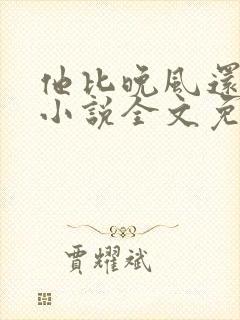 他比晚风还
小說全文免
賈耀斌